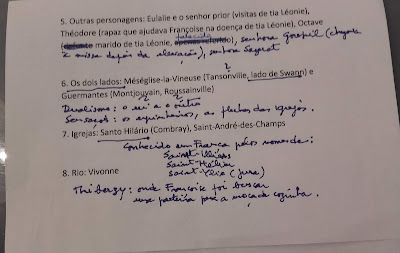 5. Outras personagens: Eulalie e o senhor prior (visitas de tia Léonie),
Théodore (rapaz que ajudava Françoise na doença de tia Léonie), Octave
falecido
(defunto marido de tia Léonie, apenas referido), senhora Goupil (chegou
à missa depois da elevação), senhora Sazerat
6. Os dois lados: Méséglise-la-Vineuse (Tansonville, lado de Swann) e
Guermantes (Montjouvain, Roussainville)
Dualismo: o eu e o outro
Sensações: os espinheiros, as flechas das igrejas.
7. Igrejas: Santo Hilário (Combray), Saint-André-des-Champs
Conhecido em França pelos nomes de:
Saint-Illiers
Saint-Hélier
Saint-Ylie (Jura)
8. Rio: Vivonne
Thiberzy: onde Françoise foi buscar
uma parteira para a moça de cozinha.